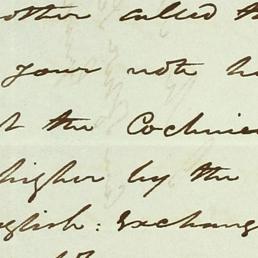 other called th
your note h
t the Cochnie
higher by the
glish: Exchang